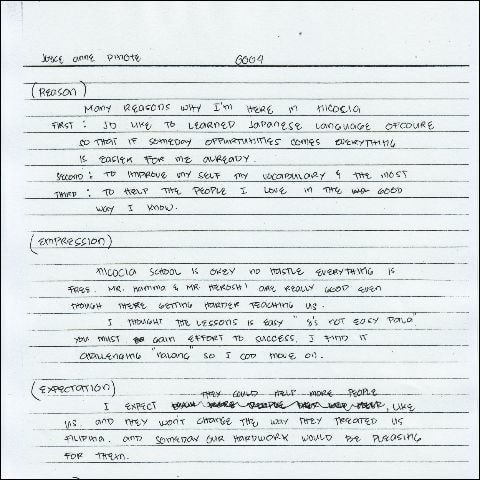 JOYCE ANNE PINOTE G004
(REASON)
MANY REASONS WHY I'M HERE IN NICOCIA
FIRST : I'D LIKE TO LEARNED JAPANESE LANGUAGE OFCOURE
SO THAT IF SOMEDAY OPPURTUNITIES COMES EVERYTHING
IS EASIER FOR ME ALREADY.
SECOND : TO IMPROVE MY SELF MY VOCABULARY & THE MOST
THIRD : TO HELP THE PEOPLE I LOVE IN THE GOOD
WAY I KNOW.
(EMPRESSION)
NICOCIA SCHOOL IS OKEY NO HASTLE EVERYTHING IS
FREE. MR. HAMMA & MR HEROSHI ARE REALLY GOOD EVEN
THOUGH THERE GETTING HARDER TEACHING US.
I THOUGHT THE LESSONS IS EASY " IS NOT EASY PALA"
YOU MUST GAIN EFFORT TO SUCCESS. I FIND IT
CHALLENGING "NALANG" SO I COD MOVE ON.
(EXPECTATION)
THEY COULD HELP MORE PEOPLE
I EXPECT , LIKE
US. AND THEY WON'T CHANGE THE WAY THEY TREATED US
FILIPINA. AND SOMEDAY OUR HARDWORK WOULD BE PLEASING
FOR THEM.